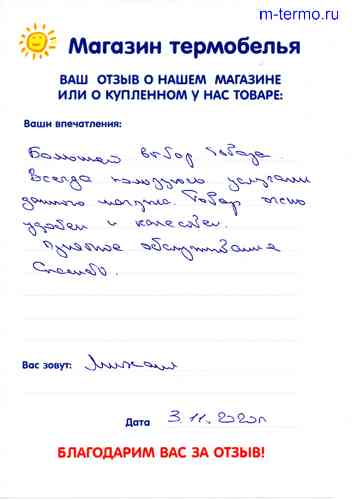 m-termo.ru
Магазин термобелья
ВАШ ОТЗЫВ О НАШЕМ МАГАЗИНЕ
ИЛИ О КУПЛЕННОМ У НАС ТОВАРЕ:
Ваши впечатления:
Большой выбор товара.
Всегда пользуюсь услугами
данного магазина. Товар очень
удобен и качествен.
Приятное обслуживание
Спасибо.
Вас зовут: Михаил
Дата 3.11.2020г
БЛАГОДАРИМ ВАС ЗА ОТЗЫВ!